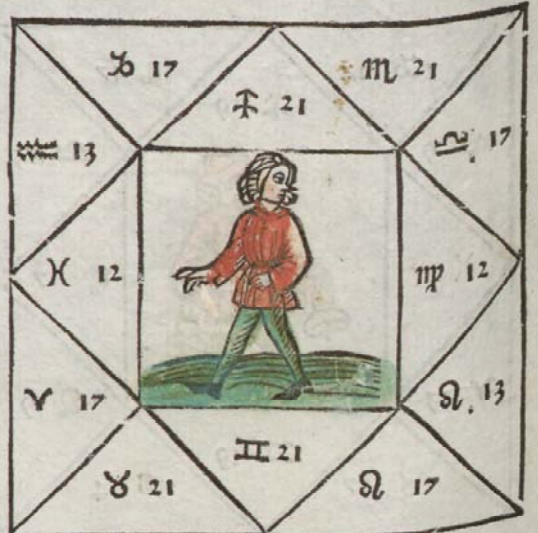 ♑ 17
♏ 21
♐ 21
♒ 13
♎ 17
♓ 12
♍ 12
♈ 17
♌ 13
♊ 21
♉ 21
♌ 17